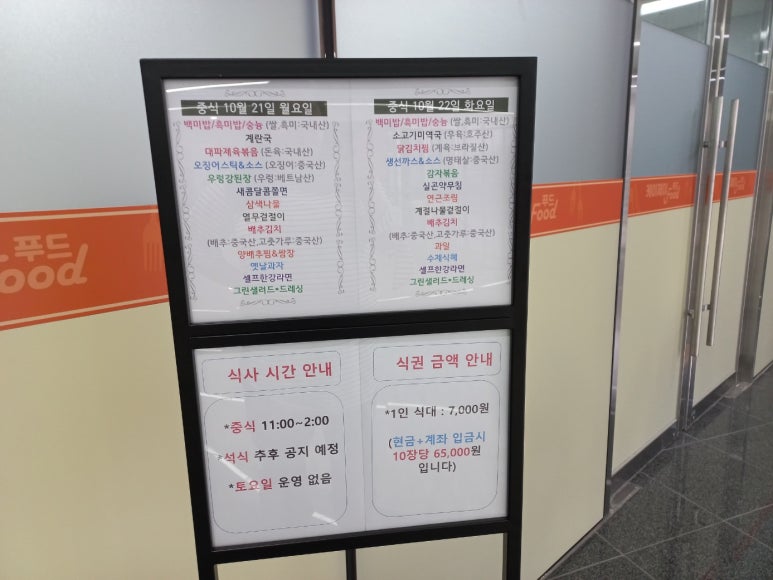 중식 10월 21일 월요일
백미밥/흑미밥/숭늉 (쌀,흑미:국내산)
계란국
대파제육볶음 (돈육:국내산)
오징어스틱&소스 (오징어:중국산)
우렁강된장 (우렁:베트남산)
새콤달콤쫄면
삼색나물
열무겉절이
배추김치
(배추:중국산,고춧가루:중국산)
양배추찜&쌈장
옛날과자
셀프한강라면
그린샐러드*드레싱
중식 10월 22일 화요일
백미밥/흑미밥/숭늉 (쌀,흑미:국내산)
소고기미역국 (우육:호주산)
닭김치찜 (계육:브라질산)
생선까스&소스 (명태살:중국산)
감자볶음
실곤약무침
연근조림
계절나물겉절이
배추김치
(배추:중국산,고춧가루:중국산)
과일
수제식혜
셀프한강라면
그린샐러드*드레싱
식사 시간 안내
*중식 11:00~2:00
*석식 추후 공지 예정
*토요일 운영 없음
식권 금액 안내
*1인 식대 : 7,000원
(현금+계좌 입금시
10장당 65,000원
입니다)
푸드
Food
푸드
Food